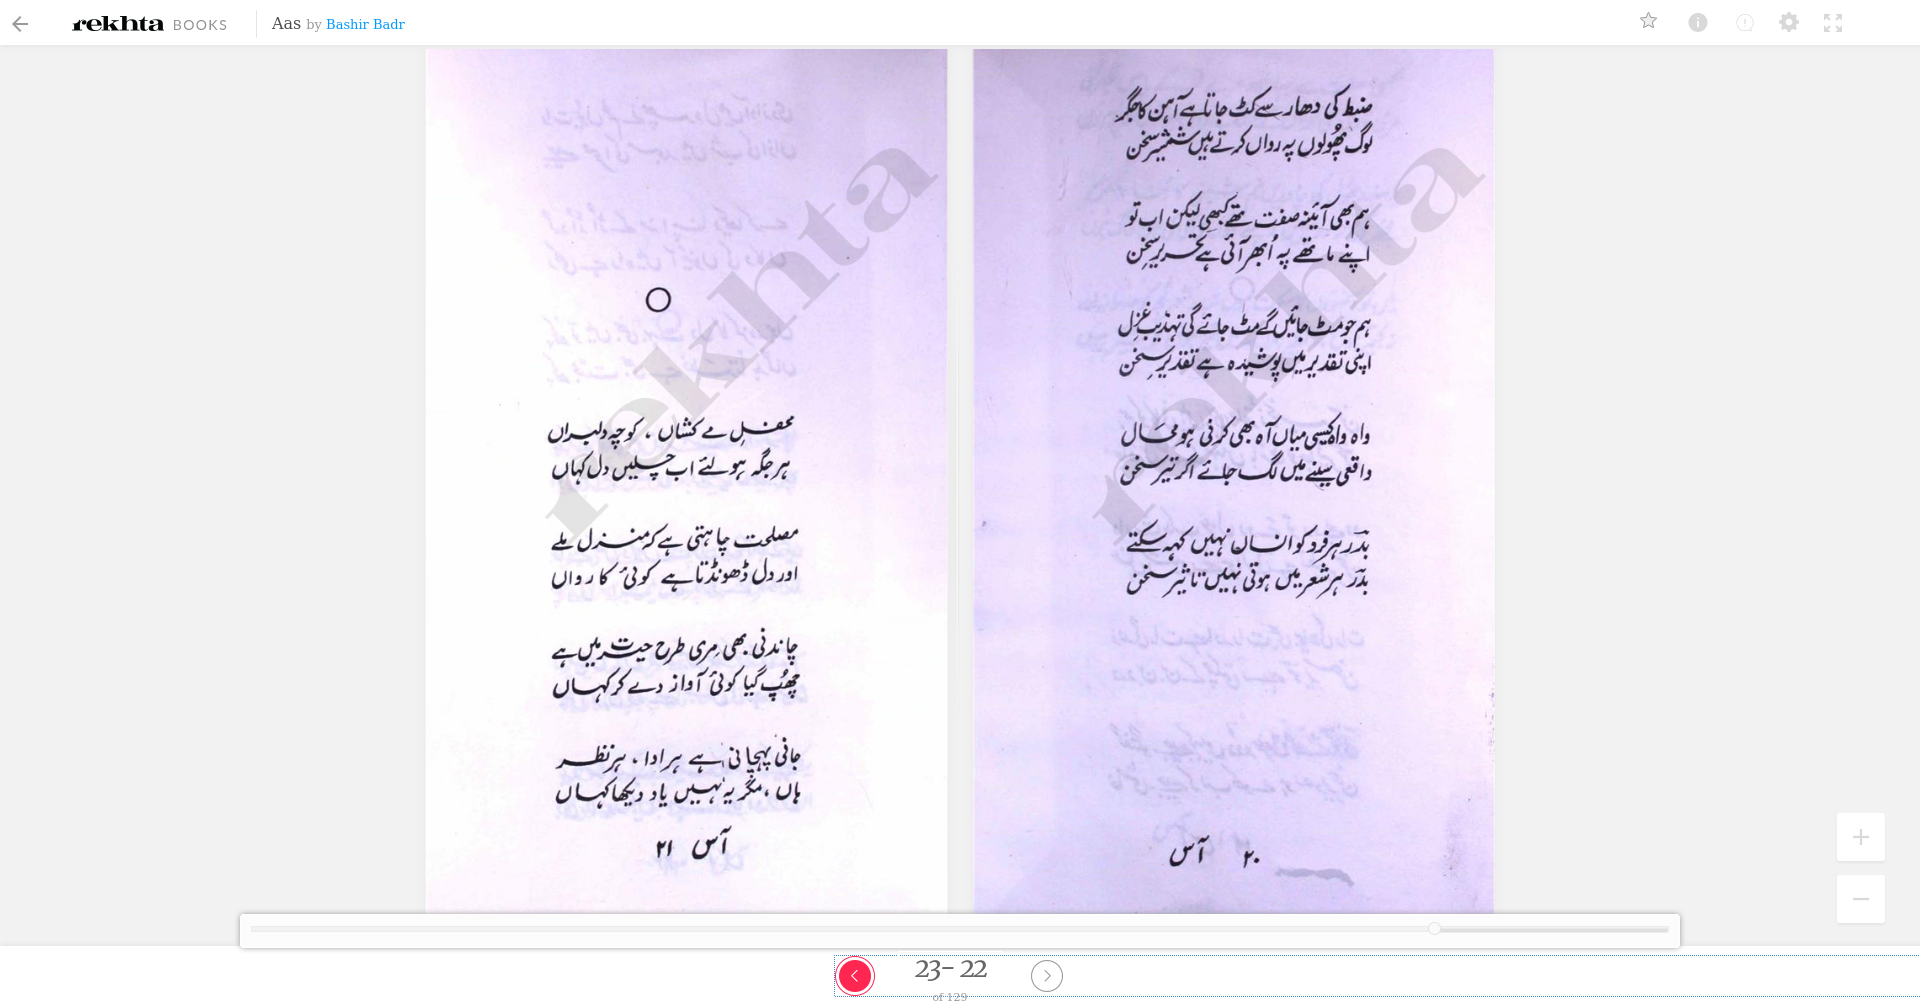 rekhta BOOKS Aas by Bashir Badr
ضبط کی دھار سے کٹ جاتا ہے آہن کا جگر
لوگ پھُولوں پہ رواں کرتے ہیں شمشیرِ سخن
ہم بھی آئینہ صفت تھے کبھی لیکن اب تو
اپنے ماتھے پہ اُبھر آئی ہے تحریرِ سخن
ہم جو مٹ جائیں گے مٹ جائے گی تہذیبِ غزل
اپنی تقدیر میں پوشیدہ ہے تقدیرِ سخن
واہ واہ کیسی میاں آہ بھی کرنی ہو محال
واقعی سینے میں لگ جائے اگر تیرِ سخن
بدرؔ ہر فرد کو انسان نہیں کہہ سکتے
بدرؔ ہر شعر میں ہوتی نہیں تاثیرِ سخن
۲۰ آس
rekhta
محفلِ مے کشاں ، کوچہ دلبراں
ہر جگہ ہولئے اب چلیں دل کہاں
مصلحت چاہتی ہے کہ منزل ملے
اور دل ڈھونڈتا ہے کوئی کارواں
چاندنی بھی مِری طرح حیرت میں ہے
چھُپ گیا کوئی آواز دے کر کہاں
جانی پہچانی ہے ہر ادا ، ہر نظر
ہاں ، مگر یہ نہیں یاد دیکھا کہاں
آس ۲۱
rekhta
23- 22
of 129